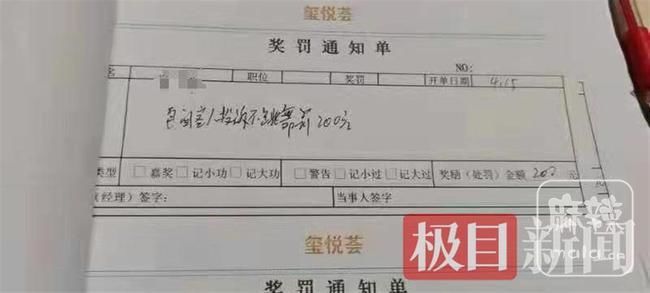 玺悦荟
奖罚通知单
NO:
名 职位 奖罚 开单日期 4.15
客人投诉不跳舞罚200元
类型 □嘉奖 □记小功 □记大功 □警告 □记小过 □记大过 奖励（处罚）金额 200 元
（经理）签字： 当事人签字
玺悦荟
奖罚通知单
极目新闻
麻辣
mala.cn